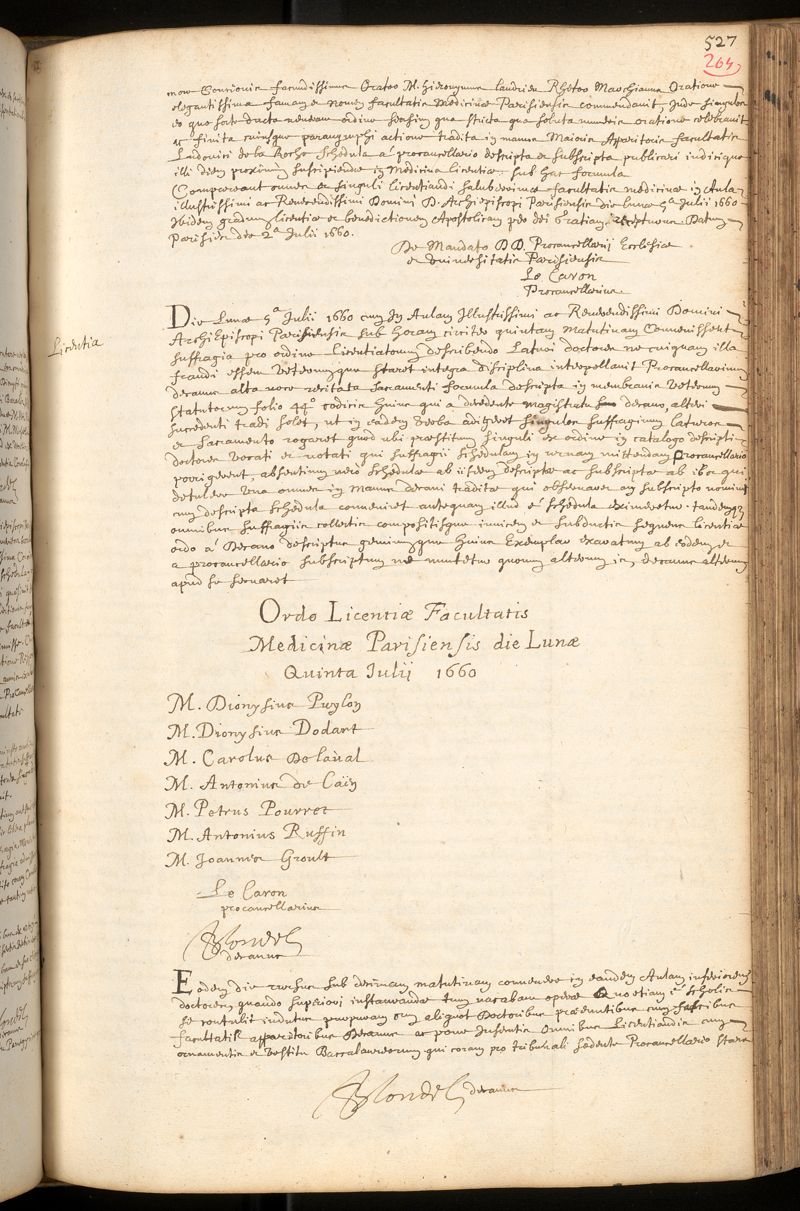 527
264
more Concionis facundissimus Orator M. Hieronymus Landrieu Rhetor Marchianus Oratione
elegantissima famam et nomen facultatis Medicinæ Parisiensis commendavit, Inde singulos
eo quo sorte ducto venerant ordine seorsim qua stricta qua soluta numeris oratione celebravit
ac finita cuiusque paranymphi actione tradita in manus Maioris Apparitoris facultatis
Ludovici de la Roche schedula a procancellario descripta et subscripta publicari indicique
illi diem proximum suscipiendæ in Medicina licentiæ sub hac formula
Compareant omnes et singuli licentiandi saluberrimæ facultatis medicinæ in Aula
illustrissimi ac Reverendissimi Domini D. Archiepiscopi Parisiensis die lunæ 5ª Julii 1660
Ibidem gradum licentiæ et benedictionem Apostolicam pro dei gratiam recepturi. Datum
Parisiis die 2ª Julii 1660.
De Mandato D D. Procancellarij Ecclesiæ
et universitatis Parisiensis
Le Caron
Procancellarius.
Licentia
Die Lunæ 5ª Julii 1660 cum In Aulam Illustrissimi ac Reverendissimi Domini
Archiepiscopi Parisiensis sub horam circiter quintam matutinam Convenissent
suffragia pro ordine Licentiatorum describendo Laturi doctores ne cuiquam illa
fraudi essent Veterumque staret integra disciplina interpellavit Procancellarium
decanus alta voce recitata sacramenti formula descripta in membranis veterum
statutorum folio 44º codicis huius qui a decedente magistratu decano, alteri
succedenti tradi solet, ut in eadem verba adigeret singulos suffragium laturos
et sacramento rogaret quod ubi præstitum singuli ex ordine in catalogo descripti
doctores vocati et rotati qui suffragii schedulam in urnam mittendam Procancellario
porrigerent, absentium vero schedulæ ab iisdem descriptæ ac subscriptæ ab iis qui
detulere una omnes in manus decani traditæ qui observaret an subscripto nomini
cum descripta schedula conveniret antequam illud e schedula eximeretur. tandemque
omnibus suffragiis collectis compositisque invicem et subductis sequens licentiæ
ordo a Decano descriptus geminumque huius Exemplar exaratum ab eodem et
a procancellario subscriptum ne mutetur quorum alterum is, decanus alterum
apud se servaret
Ordo Licentiæ Facultatis
Medicinæ Parisiensis die Lunæ
Quinta Julij 1660
M. Dionysius Puylon
M. Dionysius Dodart
M. Carolus Delaval
M. Antonius de Caïn
M. Petrus Pourret
M. Antonius Ruffin
M. Joannes Groult
Le Caron
procancellarius
Blondel
decanus
Eodem die rursus sub decimam matutinam convenere in eandem Aulam inferiorem
doctores, quando superiori instaurandæ tum vacabant operæ Quo etiam e scholis
se contulit indutus purpuram cum aliquot Doctoribus præeuntibus cum fascibus
facultatis apparitoribus Decanus ac pone insecutis omnibus Licentiandis cum
ornamentis et vestitu Baccalaureorum qui coram pro tribunali sedente Procancellario stare
Blondel decanus